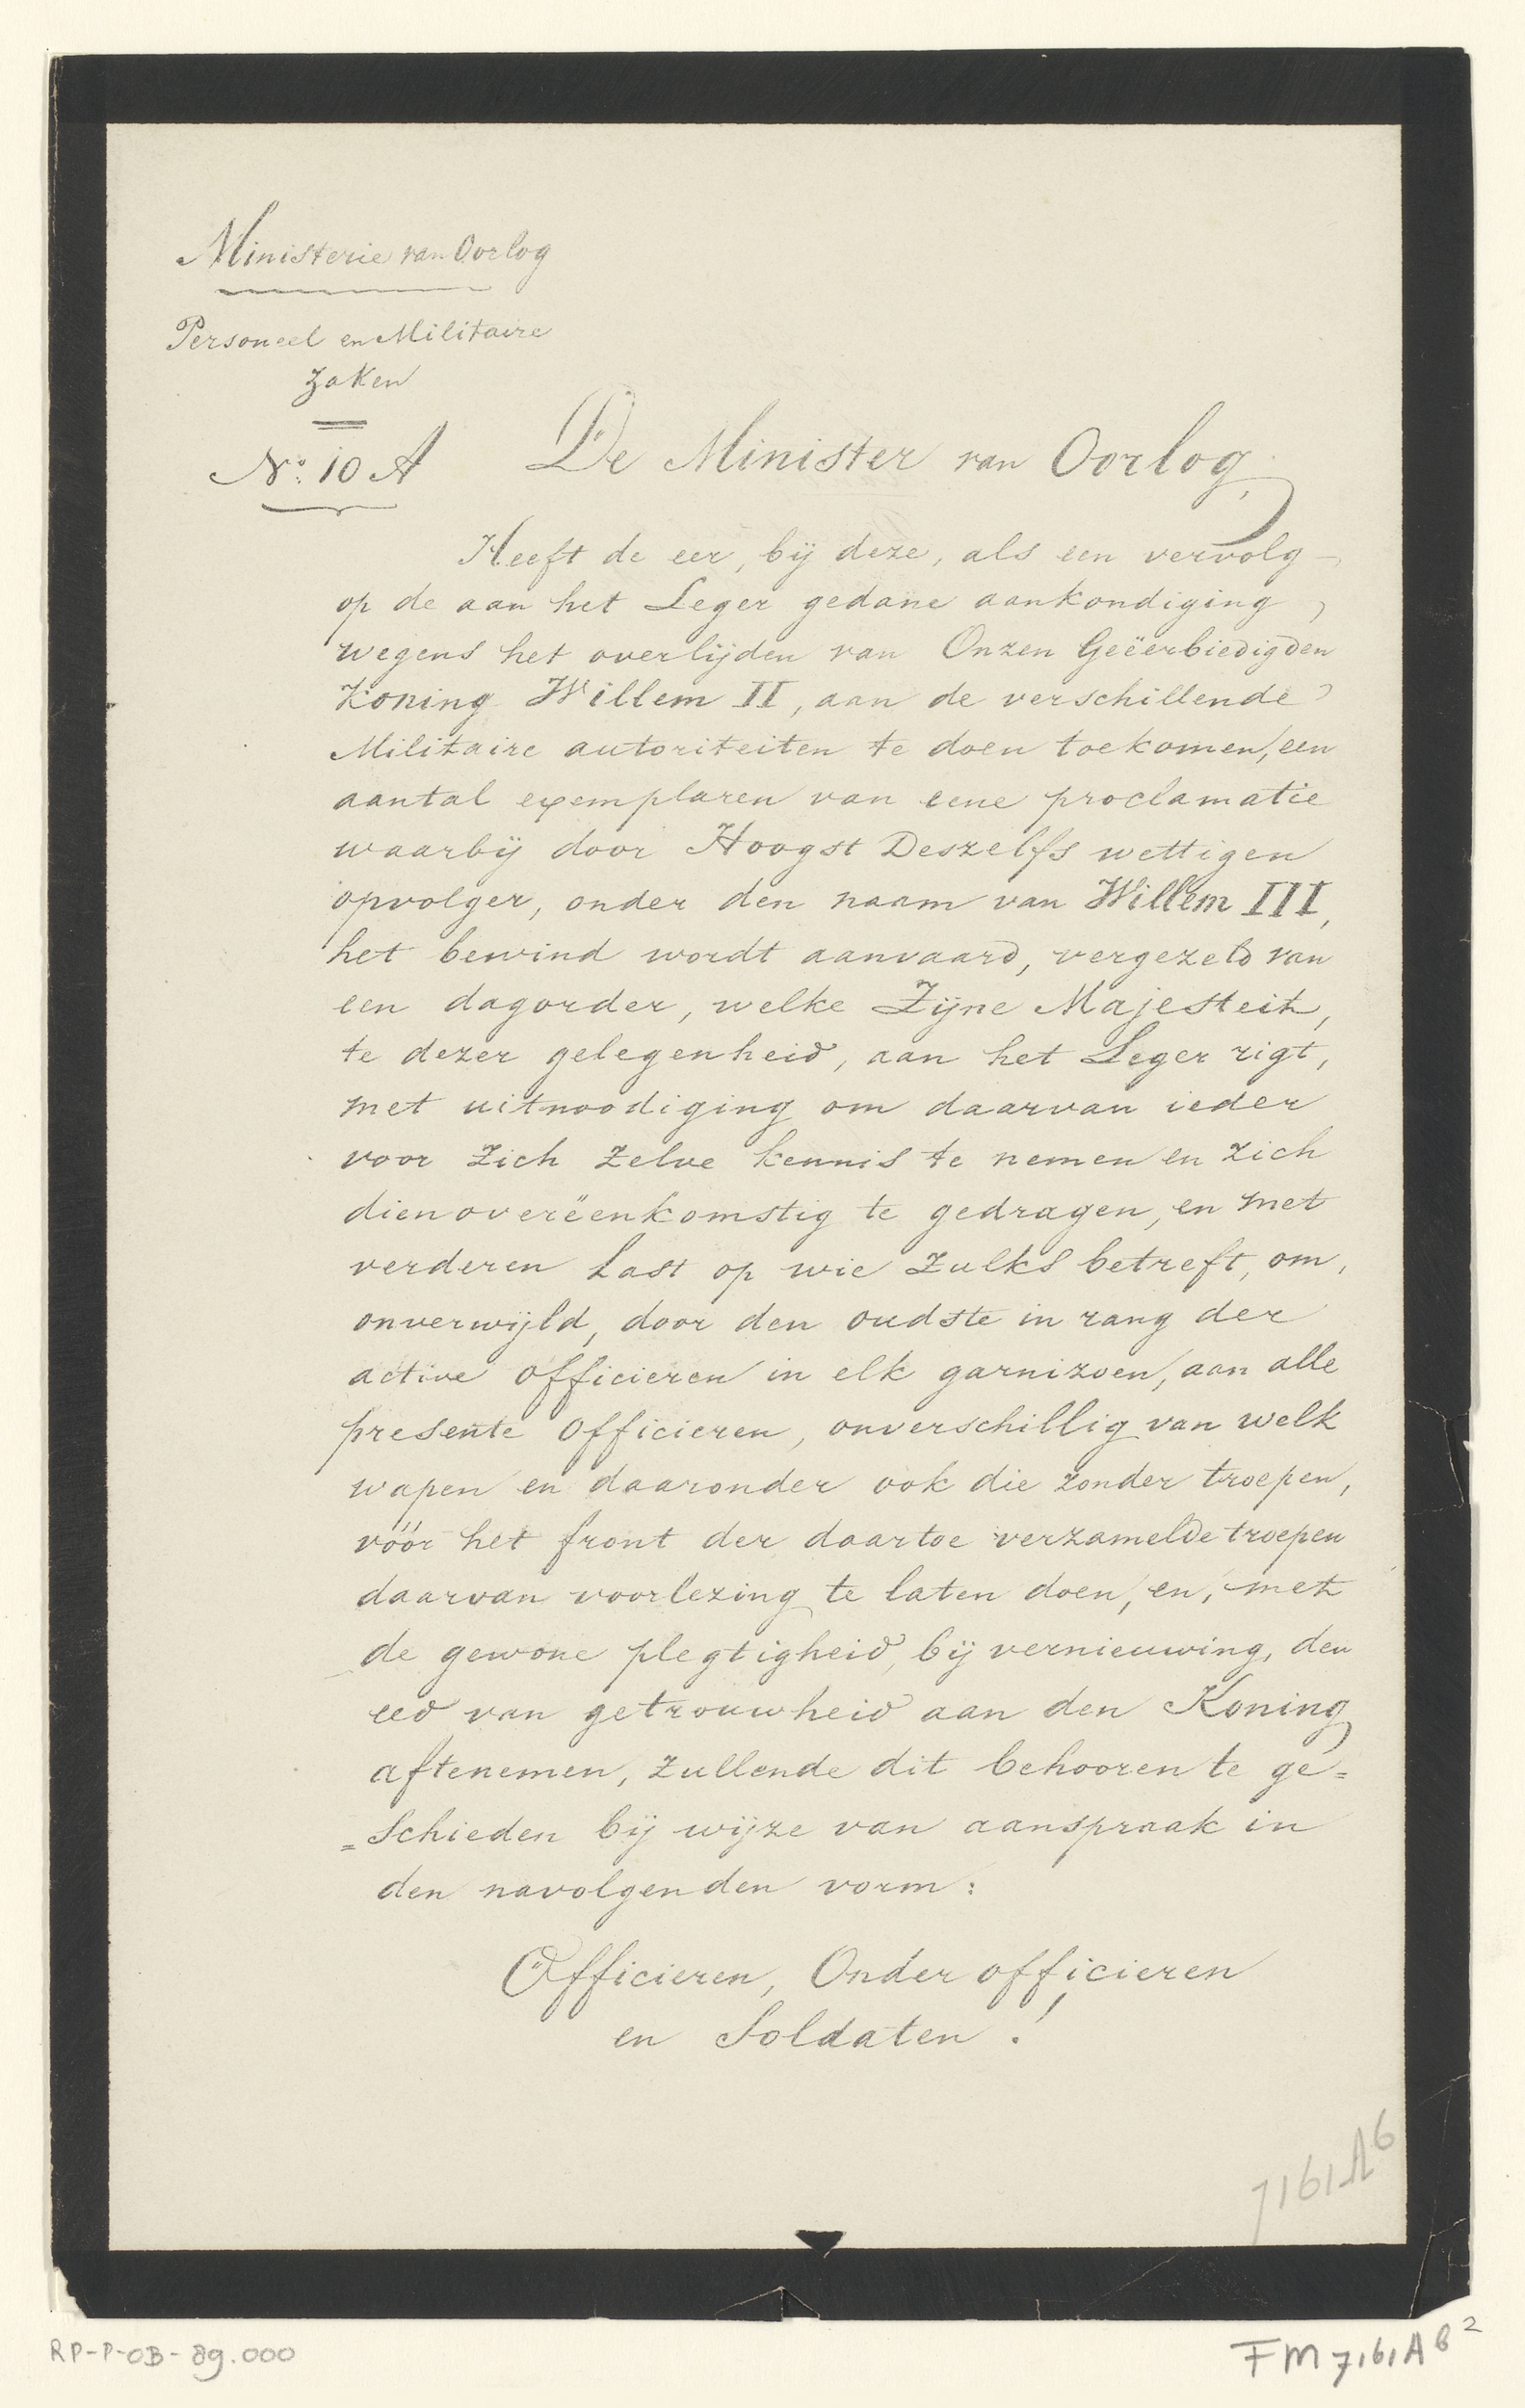 Ministerie van Oorlog
Personeel en Militaire
Zaken
No. 10 A
De Minister van Oorlog,
Heeft de eer, bij deze, als een vervolg
op de aan het Leger gedane aankondiging,
wegens het overlijden van Onzen Geëerbiedigden
Koning Willem II, aan de verschillende
Militaire autoriteiten te doen toekomen, een
aantal exemplaren van eene proclamatie
waarbij door Hoogst Deszelfs wettigen
opvolger, onder den naam van Willem III,
het bewind wordt aanvaard, vergezeld van
een dagorder, welke Zijne Majesteit,
te dezer gelegenheid, aan het Leger rigt,
met uitnoodiging om daarvan ieder
voor zich zelve kennis te nemen en zich
dienoverëenkomstig te gedragen, en met
verderen Last op wie zulks betreft, om,
onverwijld, door den oudste in rang der
active officieren in elk garnizoen, aan alle
presente Officieren, onverschillig van welk
wapen en daaronder ook die zonder troepen,
vóór het front der daartoe verzamelde troepen
daarvan voorlezing te laten doen, en, met
de gewone plegtigheid, bij vernieuwing, den
eed van getrouwheid aan den Koning
aftenemen, zullende dit behooren te ge=
=schieden bij wijze van aanspraak in
den navolgenden vorm:
Officieren, Onder officieren
en Soldaten!
7161A6
RP-P-OB-89.000
FM 7161A 6 2